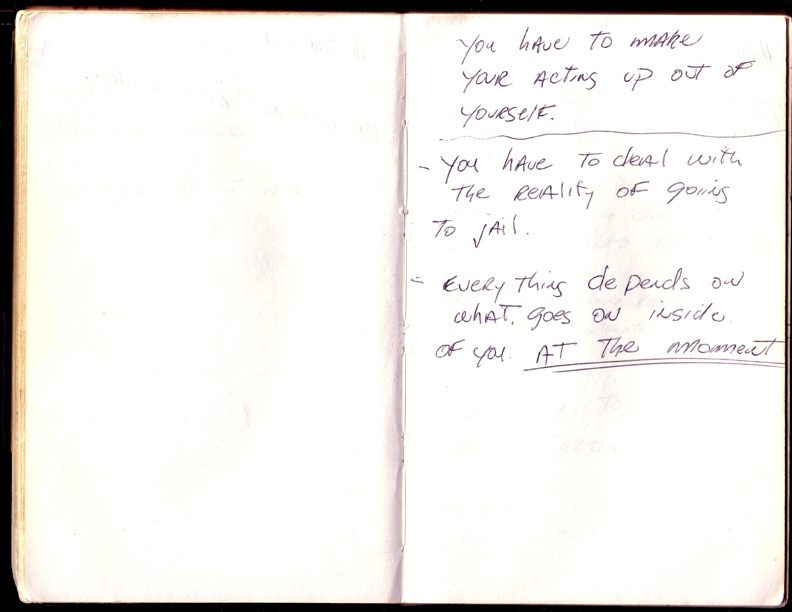 You have to make
your acting up out of
yourself.
- You have to deal with
the reality of going
to jail.
- Everything depends on
what goes on inside
of you at the moment